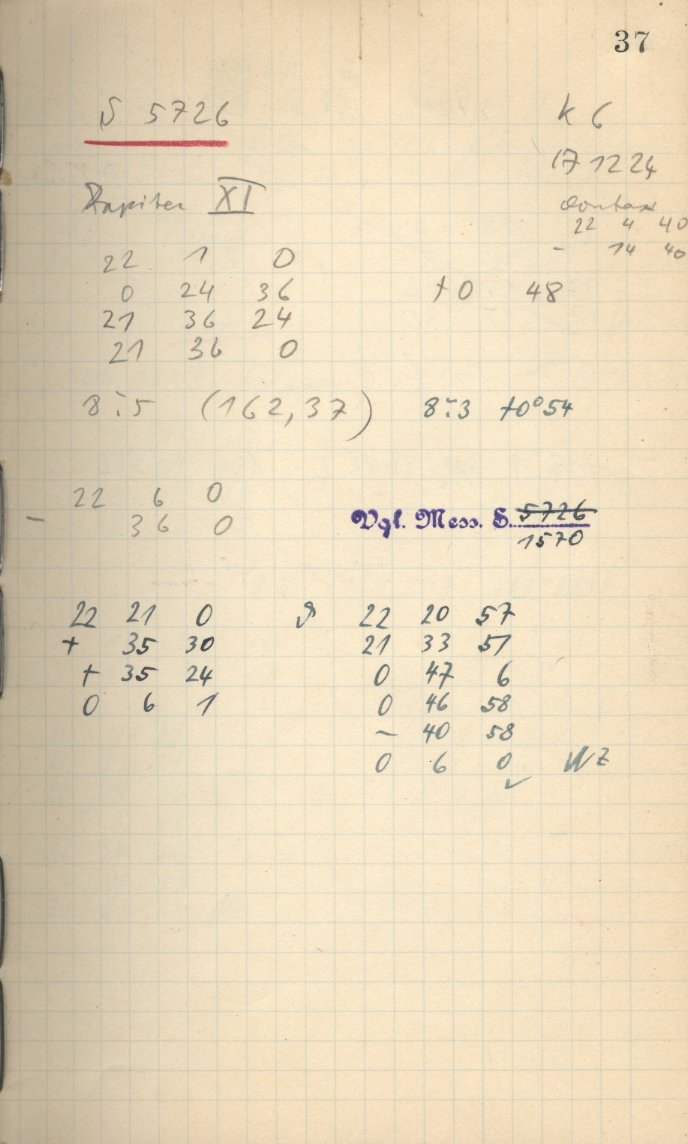 37
S 5726
K 6
17 12 24
Jupiter XI
Contax
22 4 40
- 14 40
22 1 0
0 24 36
+0 48
21 36 24
21 36 0
8:5 (162,37)
8:3 +0°54
22 6 0
- 36 0
Vgl. Mess. S. 5726
1570
22 21 0
+ 35 30
+ 35 24
0 6 1
22 20 57
21 33 51
0 47 6
0 46 58
- 40 58
0 6 0